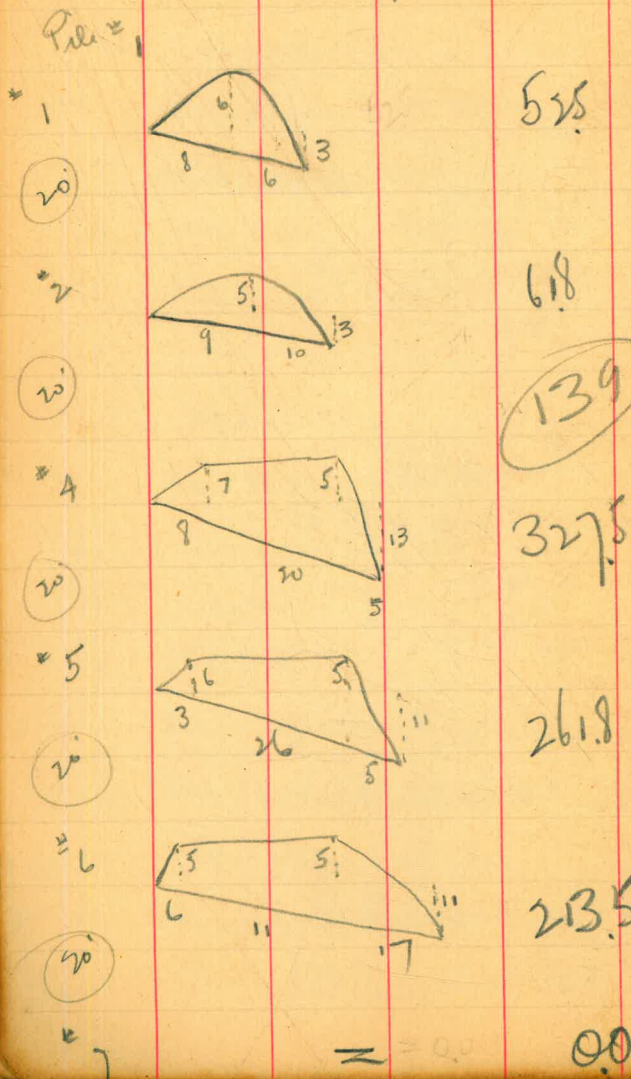 Pile #1
#1 6 52.5
8 6 3
20'
#2 5 61.8
9 10 3
20' 139
#4 7 5
8 20 13 327.5
20' 5
#5 6 5
3 26 5 11 261.8
20'
#6 5 5
6 11 17 11 213.5
20'
#7 = 0.0